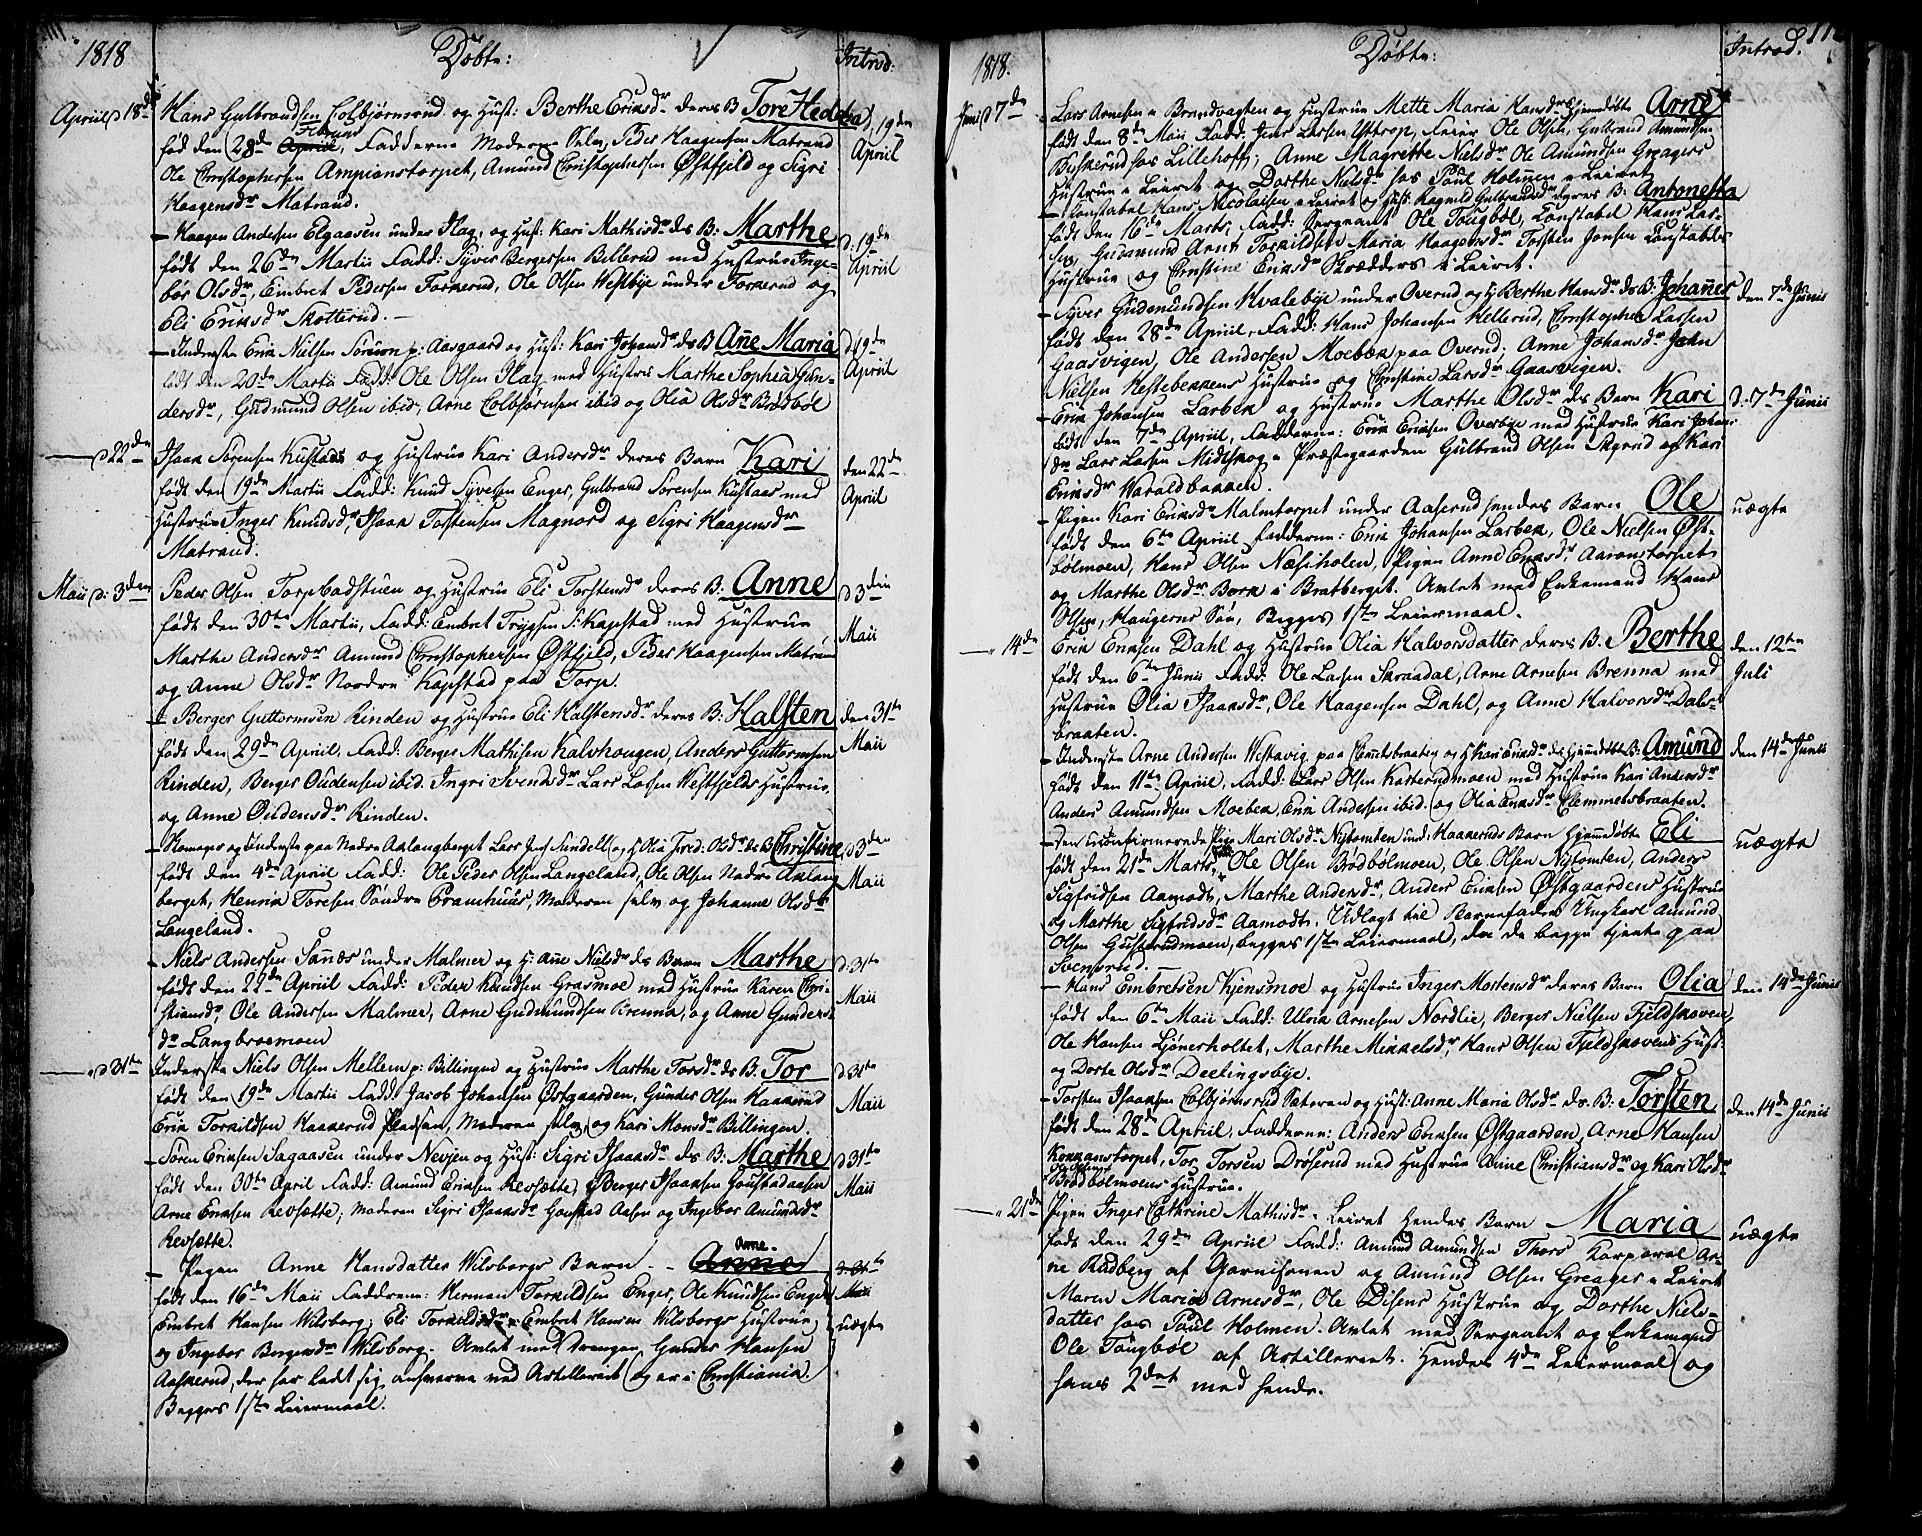 1818 Døbte: Introd:
Apriil d 18de Hans Gulbrandsen Colbjørnsrud og Hust: Berthe Eriksdr deres B Tore Hedeba d. 19de
fød den 28de Apriil Februar, Fadderne Moderen Selv, Peder Haagensen Matrand Apriil
Ole Christophersen Ampianstorpet, Amund Christophersen Østfjeld og Sigri
Haagensdr Matrand.
– Haagen Andersen Elgaasen under Hag, og Hust: Kari Mathisdr ds B: Marthe d. 19de
født den 26de Martii Fadd: Syver Bergersen Bellerud med Hustrue Inge- Apriil
bor Olsdr, Embret Pedersen Torkerud, Ole Olsen Westbye under Torkerud og
Eli Eriksdr Skotterud. –
– Inderste Erik Nielsen p: Aasgaard og Hust: Kari Johansdr ds B Ane Maria d 19de
født den 20de Martii Fadd: Ole Olsen Hag med Hustru Marthe Sophia Gun- Apriil
dersdr, Gudmund Olsen ibid, Arne Colbjørnsen ibid og Olia Olsdr Brødbøl
– d 22de Isaak Sørensen Kustaas og Hustrue Kari Andersdr deres Barn Kari den 22de
født den 19de Martii Fadd: Knud Syversen Enger, Gulbrand Sørensen Kustaas med Apriil
Hustrue Inger Knudsdr, Isaak Tostensen Magnord og Sigri Haagensdr
Matrand.
Maii d: 3den Peder Olsen Torpbadstuen og Hustrue Eli Torstensdr deres B: Anne d 3die
født den 30te Martii, Fadd: Embret Trygsen S: Kapstad med Hustrue Maii
Marthe Andersdr Amund Christophersen Østfjeld, Peder Haagensen Matrand
og Anne Olsdr Nordre Kapstad paa Torp.
– Berger Guttormsen Rinden og Hustrue Eli Halstensdr deres B: Halsten den 31te
født den 29de Apriil, Fadd: Berger Mathisen Kalvhougen, Anders Guttormsen Maii
Rinden, Berger Oudensen ibid. Ingri Svensdr Lars Larsen Westfjelds Hustrue
og Anne Oudensdr Rinden.
– og Inderste paa Nedre Aalangberget Lars Sundell og H Olia Olsdr ds B Christine d 3de
født den 4de Apriil Fadd: Ole Peder Olsen Langeland, Ole Olsen Nedre Aalang Maii
berget, Henrik Toresen Søndre Pramhuus, Moderen selv og Johanne Olsdr
Langeland.
– Niels Andersen Sanæs under Malmer og H: Ane Nielsdr ds Barn Marthe d. 31te
født den 22de Apriil Fadd: Peder Knudsen Grasmoe med Hustrue Karen Chri- Maii
stiansdr, Ole Andersen Malmer, Arne Gudmundsen Brenna, og Anne Gunders-
dr Langbroemoen
– d 31te Inderste Niels Olsen Mellem p: Billingen og Hustrue Marthe Torsdr ds B: Tor d 31te
født den 19de Martii Fadd: Jacob Johansen Østgaarden, Gunder Olsen Haakerud Maii
Erik Torkildsen Haakerud Pladsen, Moderen selv, og Kari Monsdr Billingen.
– Søren Eriksen Sagaasen under Nevjen og Hust: Sigri Isaaksdr ds B: Marthe d 31te
født den 30te April Fadd: Amund Eriksen Revsætte, Berger Isaaksen Houstadaasen Maii
Arne Eriksen Revsætte, Moderen Sigri Isaaksdr Houstad Aasen og Ingebor Amundsdr
Revsætte.
– Pigen Anne Hansdatter Wilsborgs Barn – Anne Arne d 31te
født den 16de Maii Fadderne: Herman Torkildsen Enger, Ole Knudsen Enger Maii
Embret Hansen Wilsborg, Eli Torkildsdr Embret Hansens Wilsborgs Hustrue, uægte
og Ingebor Bergersdr Wilsborg. Avlet med Drengen Gunder Hansen
Aaskerud, der har ladt sig antverve ved Artilleriet og er i Christiania.
Begges 1ste Leiermaal.

1818. Døbte: Introd. 11
Juni d 7de Lars Arnesen Brandvagten og Hustrue Mette Maria Hansdrs Hiemdøbte Arne
født den 8de Maii Fadd: Jens Larsen Ystrop, Feier Ole Olsen, Gulbrand Amundsen
Buskerud hos Lillehoff; Anne Magrethe Nielsdr Ole Amundsen Greagers
Hustrue i Leiret og Dorthe Nielsdr hos Poul Holmen i Leiret
– Constabel Hans Nicolaisen i Leiret og Hust: Ragnild Gulbrandsdr deres B: Antonetta
født den 16de Marts, Fadd: Sergeant Ole Tougbøl, Constabel Hans Lar-
sen, Gudmund Arnt Torkildsen Maria Haagensdr Torsten Jonsen Constabels
Hustrue og Christine Eriksdr Skrædders i Leiret.
– Syver Gudmundsen Kvalebye under Overud og H Berthe Hansdr ds B: Johannes den 7de Junii
født den 28de Apriil, Fadd: Hans Johansen Hellerud, Christopher Larsen
Gaasvigen, Ole Andersen Moebæk paa Overud, Anne Johansdr John
Nielsen Hestebekkens Hustrue og Christine Larsdr Gaasvigen.
– Erik Johansen Larbek og Hustrue Marthe Olsdr ds Barn Kari d: 7de Junii
født den 7de Apriil, Fadderne: Erik Eriksen Overbye med Hustrue Kari Johans
dr Lars Larsen Midtskog i Præstegaarden Gulbrand Olsen Sigerud og Kari
Eriksdr Haraldbakken
– Pigen Kari Eriksdr Malmtorpet under Aaserud hendes Barn Ole uægte
født den 6te Apriil Fadderne: Erik Johansen Larbek, Ole Nielsen Øst-
bølmoen, Hans Olsen Næsiholen, Pigen Anne Eriksdr Aaronstorpet
og Marthe Olsdr Børn i Bratberget. Avlet med Enkemand Hans
Olsen, Haugerns Søn, Begges 1ste Leiermaal.
– 14de Erik Eriksen Dahl og Hustrue Olia Halvorsdatter deres B: Berthe den 12te
født den 6te Junii Fadd: Ole Larsen Skraadal, Arne Arnesen Brenna med Juli
Hustrue Olia Isaaksdr, Ole Haagensen Dahl, og Anne Halvorsdr Dals-
braaten.
– Inderste Arne Andersen Westavig paa Clemmetsbraaten og H Kari Eriksdr ds Hiemdøbte B: Amund den 14de Junii
født den 11te Apriil, Fadd: Lars Olsen Kasterudmoen med Hustrue Kari Andersdr
Anders Amundsen Moebek, Erik Andersen ibid. og Olia Eriksdr Clemmetsbraaten.
– Den uconfirmerede Pige Mari Olsdr Nystomten und: Haakeruds Barn Hjemdøbte Eli uægte
født den 21de Marts, Ole Olsen Brødbølmoen, Ole Olsen Nystomten, Anders
Sigfridsen Aamodt, Marthe Andersdr, Anders Eriksen Østgaardens Hustrue
og Marthe Sigfredsdr Aamodt. Udlagt til Barnefader Ungkarl Amund
Olsen Gusterudmoen, begges 1ste Leiermaal, da de begge tjente paa
Svensrud. –
– Hans Embretsen Kjensmoe og Hustrue Inger Mortensdr deres Barn Olia den 14de Junii
født den 6te Maii Fadd: Ulrik Arnesen Nordlie, Berger Nielsen Fjeldskoven,
Ole Hansen Tjønersholtet, Marthe Mikkelsdr, Hans Olsen Fjeldskovens Hust:
og Dorte Olsdr Deelingsbye.
– Torsten Isaaksen Colbjørnsrud Sæteren og Hust: Anne Maria Olsdr ds. B: Torsten den 14de Junii
født den 28de Apriil, Fadderne: Anders Eriksen Østgaarden, Arne Hansen
Korpanstorpet, Tor Torsen Drøserud med Hustrue Anne Christiansdr og Kari Olsdr
Brødbølmoens Hustrue.
– 21de Pigen Inger Cathrine Mathisdr i Leiret hendes Barn Maria uægte
født den 29de Apriil Fadd: Amund Amundsen Thors Korporal Ar-
ne Rudberg af Garnisonen og Amund Olsen Greager i Leiret
Maren Maria Arnesdr, Ole Disens Hustrue og Dorthe Niels-
datter hos Poul Holmen. Avlet med Sergeant og Enkemand
Ole Tougbøl af Artilleriet. Hendes 4de Leiermaal og
hans 2det med hende.